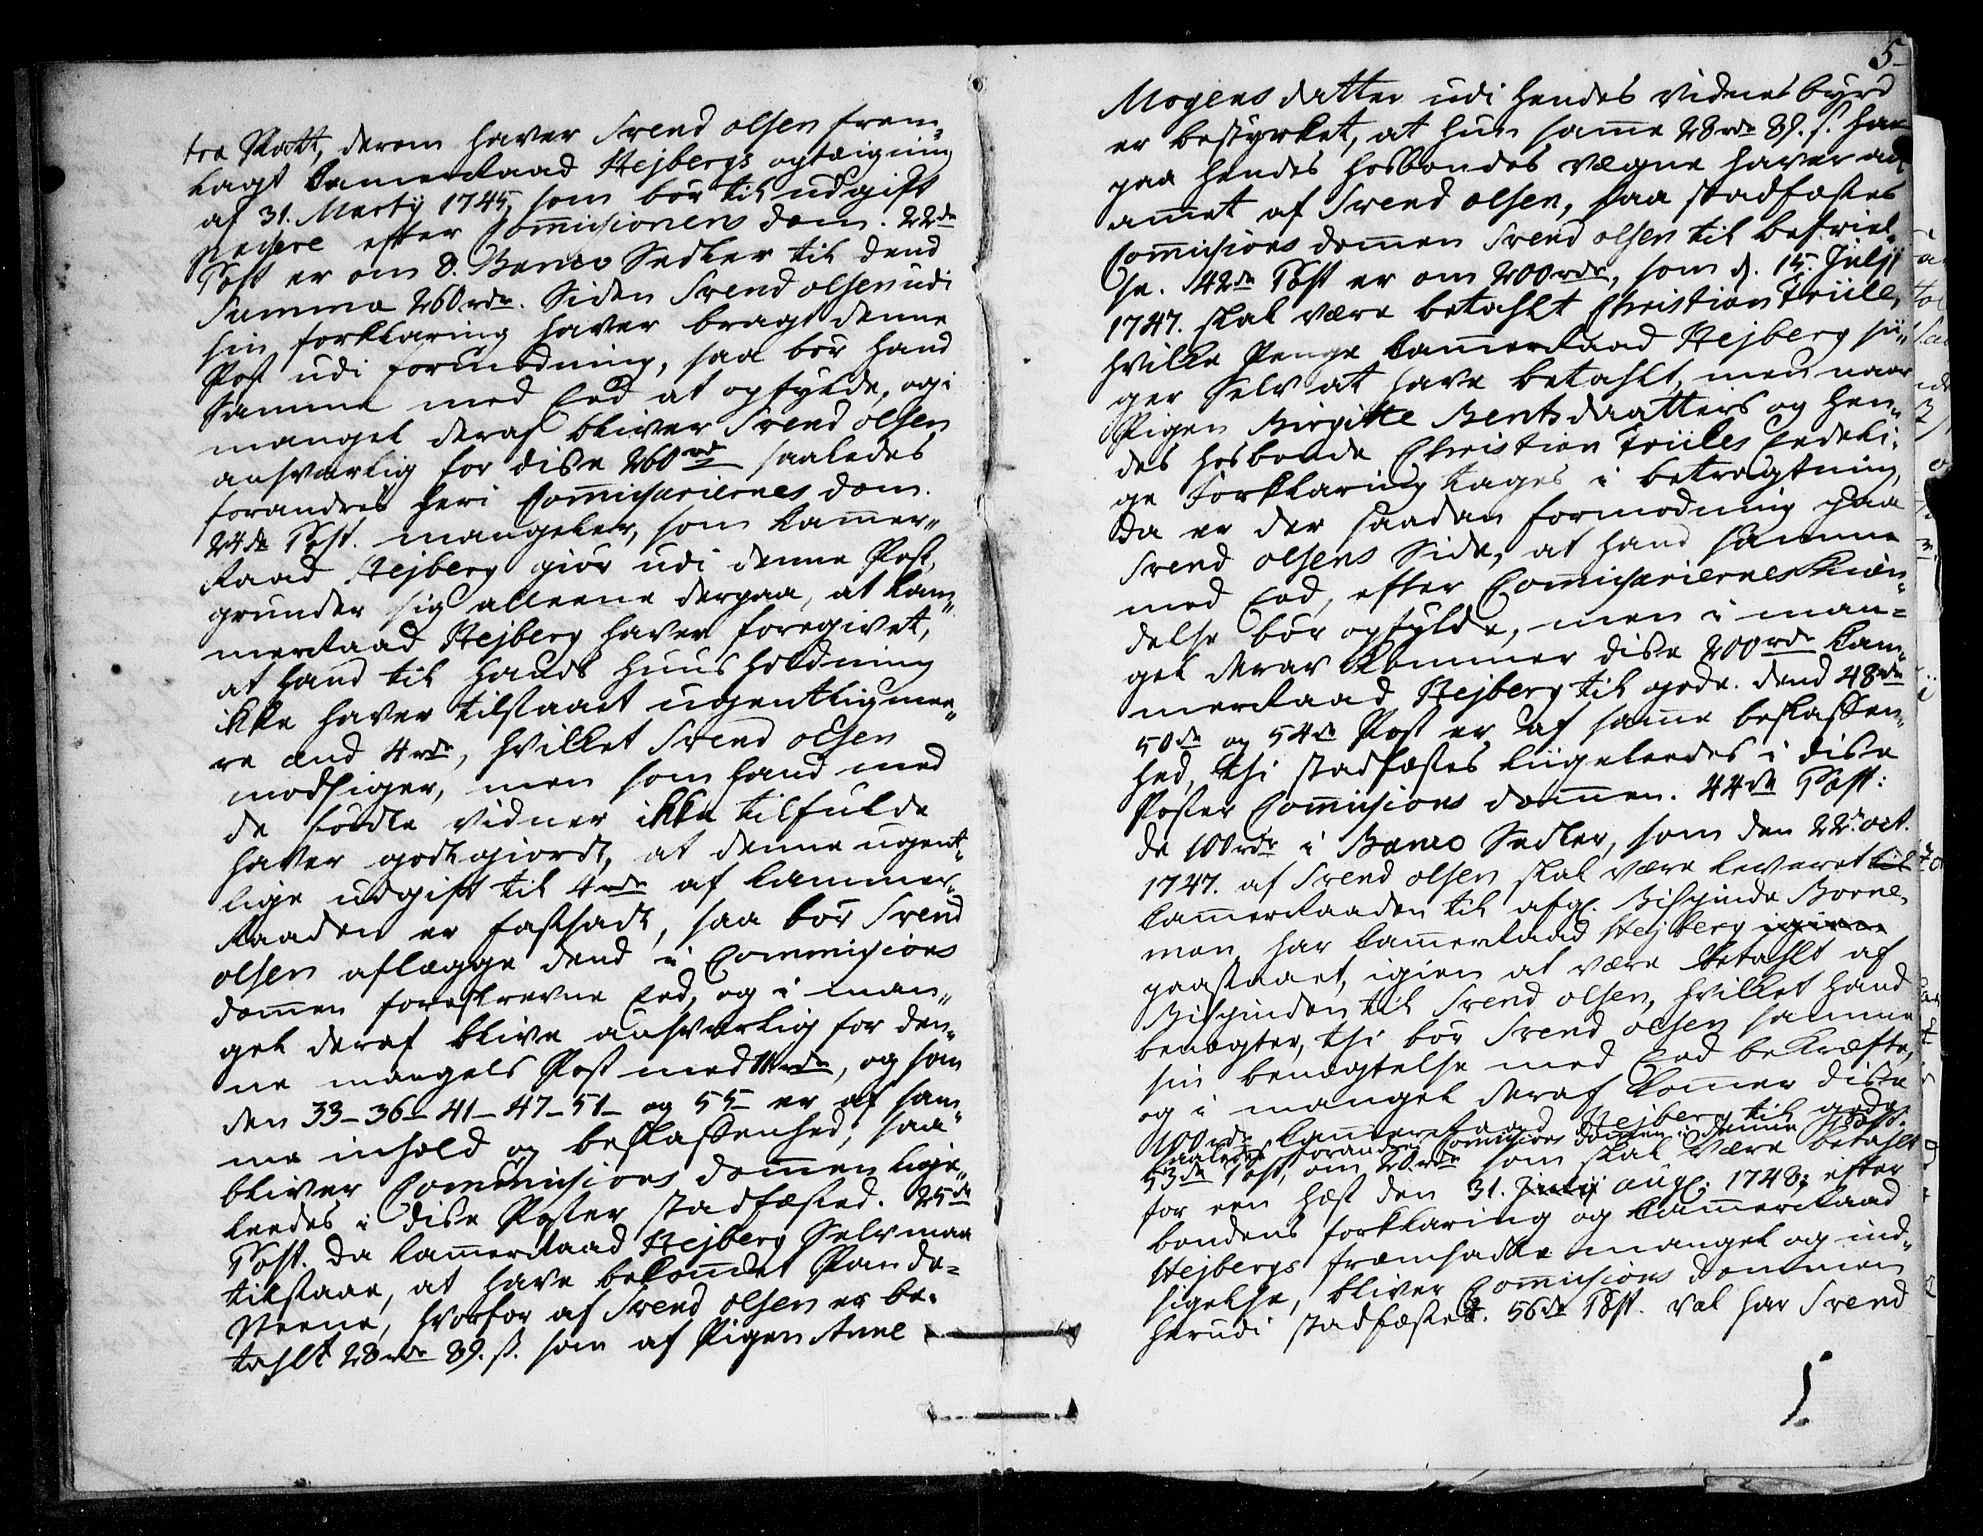 tra Skatt, derom haver Svend olsen frem„
lagt Cammerraad Hejbergs optægning
af 31. Martij 1745, som bör til udgift
passere efter Commissionens dom. 22de
Post er om 8. Banco Sedler til dend
Summa 260 rdr. Siden Svend olsen udi
sin forklaring haver bragt denne
Post udi formodning, saa bör hand
Samme med Eed at opfylde, og i
mangel deraf bliver Svend olsen
ansvarlig for disse 260 rdr saaledes
forandres heri Commissariernes dom.
24de Post. mangeler, som Cammer„
Raad Hejberg giör udi denne Post,
grunder sig alleene derpaa, at Cam„
merraad Hejberg haver foregivet,
at hand til hands Huusholdning
ikke haver tilstaaet ugentlig mee„
re end 4 rdr, hvilket Svend olsen
modsiger, men som hand med
de fördte vidner ikke tilfulde
haver godtgiordt, at denne ugent„
lige udgift til 4 rdr af Cammer„
Raaden er fastsadt, saa bör Svend
olsen aflægge dend i Commissions
dommen foreskrevne Eed, og i man„
gel deraf blive ansvarlig for den„
ne mangels Post med rdr, og som
den 33-36-41-47-51- og 55- er af sam„
me inhold og beskaffenhed, saa
bliver Commissions dommen lige„
leedes i disse Poster stadfæsted. 25de
Post. Da Cammerraad Hejberg Selv maa
tilstaae, at have bekommet Pande=
Steene, hvorfor af Svend olsen er be„
tahlt 28 rdr 89. s. som af Pigen Anne
5
Mogens datter udi hendes vidnesbyrd
er bestyrket, at hun samme 28 rdr 89. s. har
paa hendes hosbondes vegne haver an„
ammet af Svend olsen, saa stadfæstes
Commissions dommen Svend olsen til befriel„
se. 42de Post er om 200 rdr, som d. 15. Julij
1747. skal være betahlt Christian Friile,
hvilke Penge Cammerraad Hejberg si„
ger Selv at have betahlt, men naar
Pigen Birgitte Bents daatters og hen„
des hosbonde Christian Friiles Eedeli„
ge Forklaring tages i betragtning,
da er der saadan formodning paa
Svend olsens Side, at hand samme
med Eed, efter Commissariernes kien„
delse bör opfylde, men i man=
gel derav kommer disse 200 rdr Cam„
merraad Hejberg til gode. dend 48de
50de og 54de Post er af samme beskaffen„
hed, thi stadfæstes liigeleedes i disse
Poster Commissions dommen. 44de Post:
de 100 rdr i Banco Sedler, som den 22. oct.
1747. af Svend olsen skal være leveret til
Cammerraaden til afg. Bispinde Borne„
man, har Cammerraad Hejberg igien
paastaaet, igien at være betahlt af
Bispinden til Svend olsen, hvilket hand
benegter, thi bör Svend olsen samme
sin benegtelse med Eed bekræfte,
og i mangel deraf kommer disse
100 rdr Cammerraad Hejberg til gode,
saaledes forandres Commissions dommen i denne Post.
53de Post, om 20 rdr som skal være betahlt
for een hæst den 31. Julij aug. 1748, efter
bondens forklaring og Cammerraad
Hejbergs fræmsadte mangel og ind„
sigelse, bliver Commissions dommen
herudi stadfæstet. 56de Post. vel har Svend